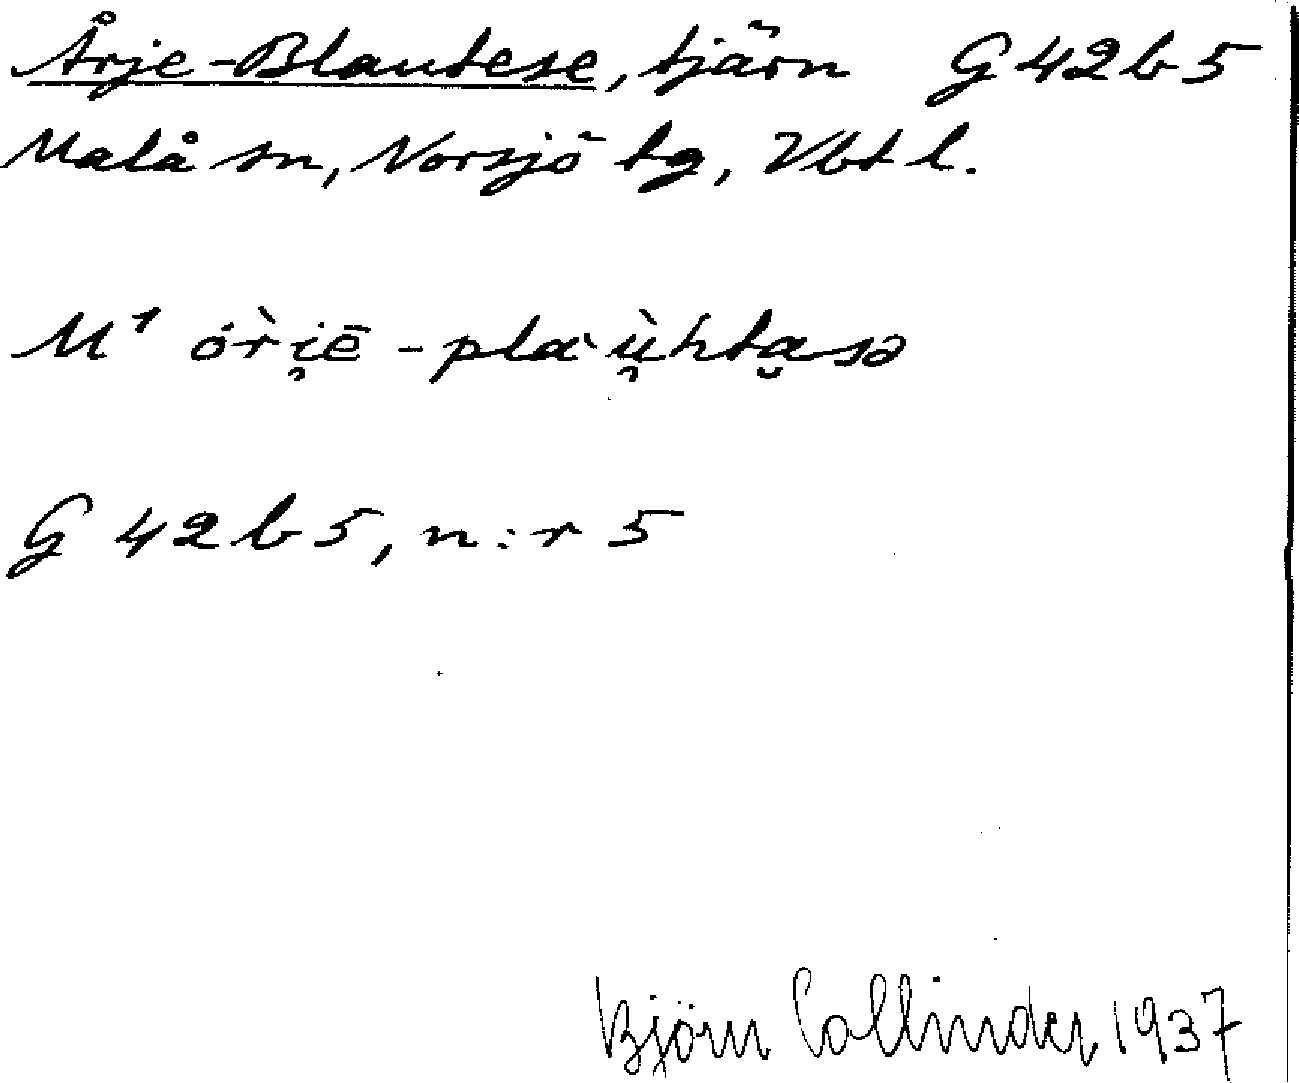 Årje-Blautese, tjärn G 42 b 5
Malå sn, Norsjö tg, Vbt l.
M¹ ór̀i̯ē-pla ̀ù̯hta̮sə
G 42 b 5, n:r 5
Björn Collinder 1937